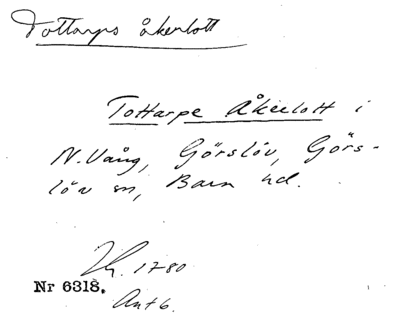 Tottarps åkerlott
Tottarps Åkerlott i
N. Vång, Görslöv, Görs-
löv sn, Bara hd.
1780
Nr 6318.
Ant 6.